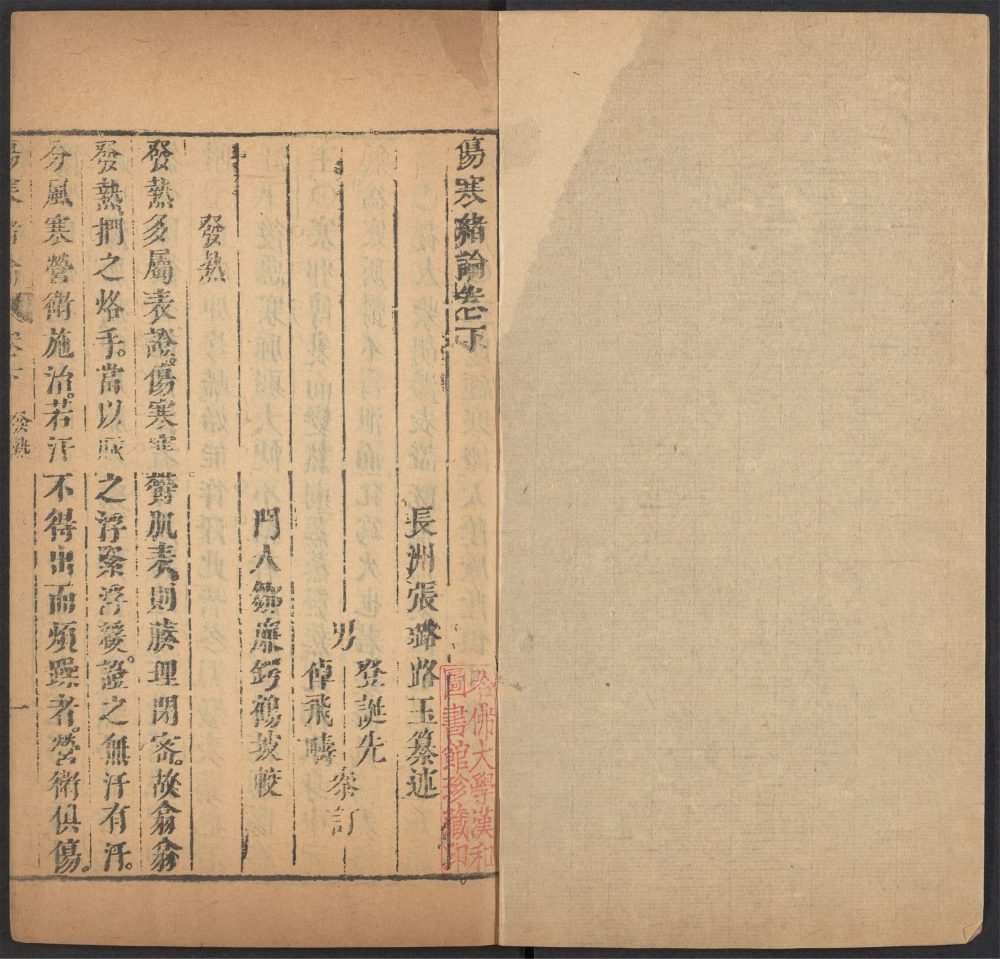 傷寒緒論卷下
長洲張璐路玉纂述
男
登誕先
倬飛疇
參訂
門人鄒廉鍔鶴坡較
發熱
發熱多屬表證。傷寒寒鬱肌表。則腠理閉密。故翕翕
發熱。捫之烙手。當以脈之浮緊浮緩。證之無汗有汗。
分風寒營衛施治。若汗不得出而煩躁者。營衛俱傷。
傷寒緒論
卷下
發熱
一
哈佛大學漢和
圖書館珍藏印